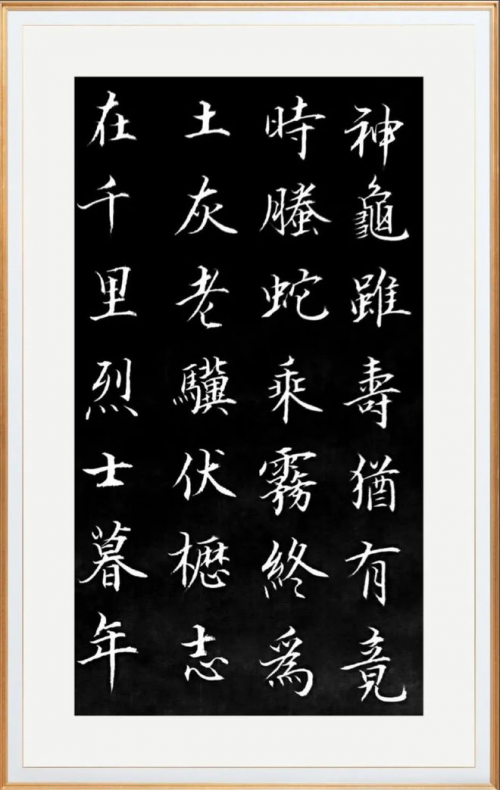 神龜雖壽猶有竟
時螣蛇乘霧終爲
土灰老驥伏櫪志
在千里烈士暮年